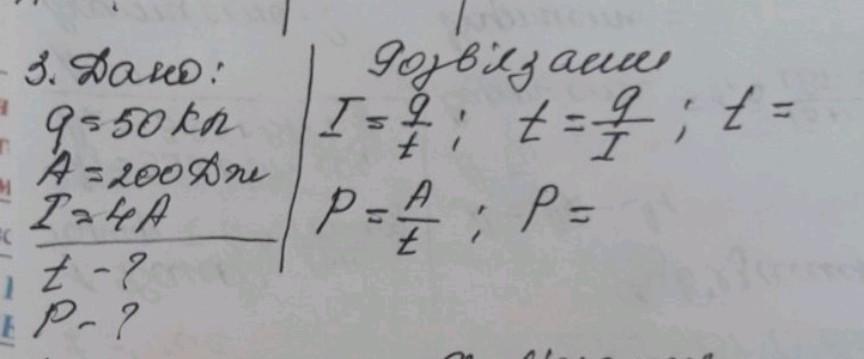 3. Дано:
q = 50 Кл
A = 200 Дж
I = 4A
t - ?
P - ?
Розв'язання
I = q/t ; t = q/I ; t =
P = A/t ; P =